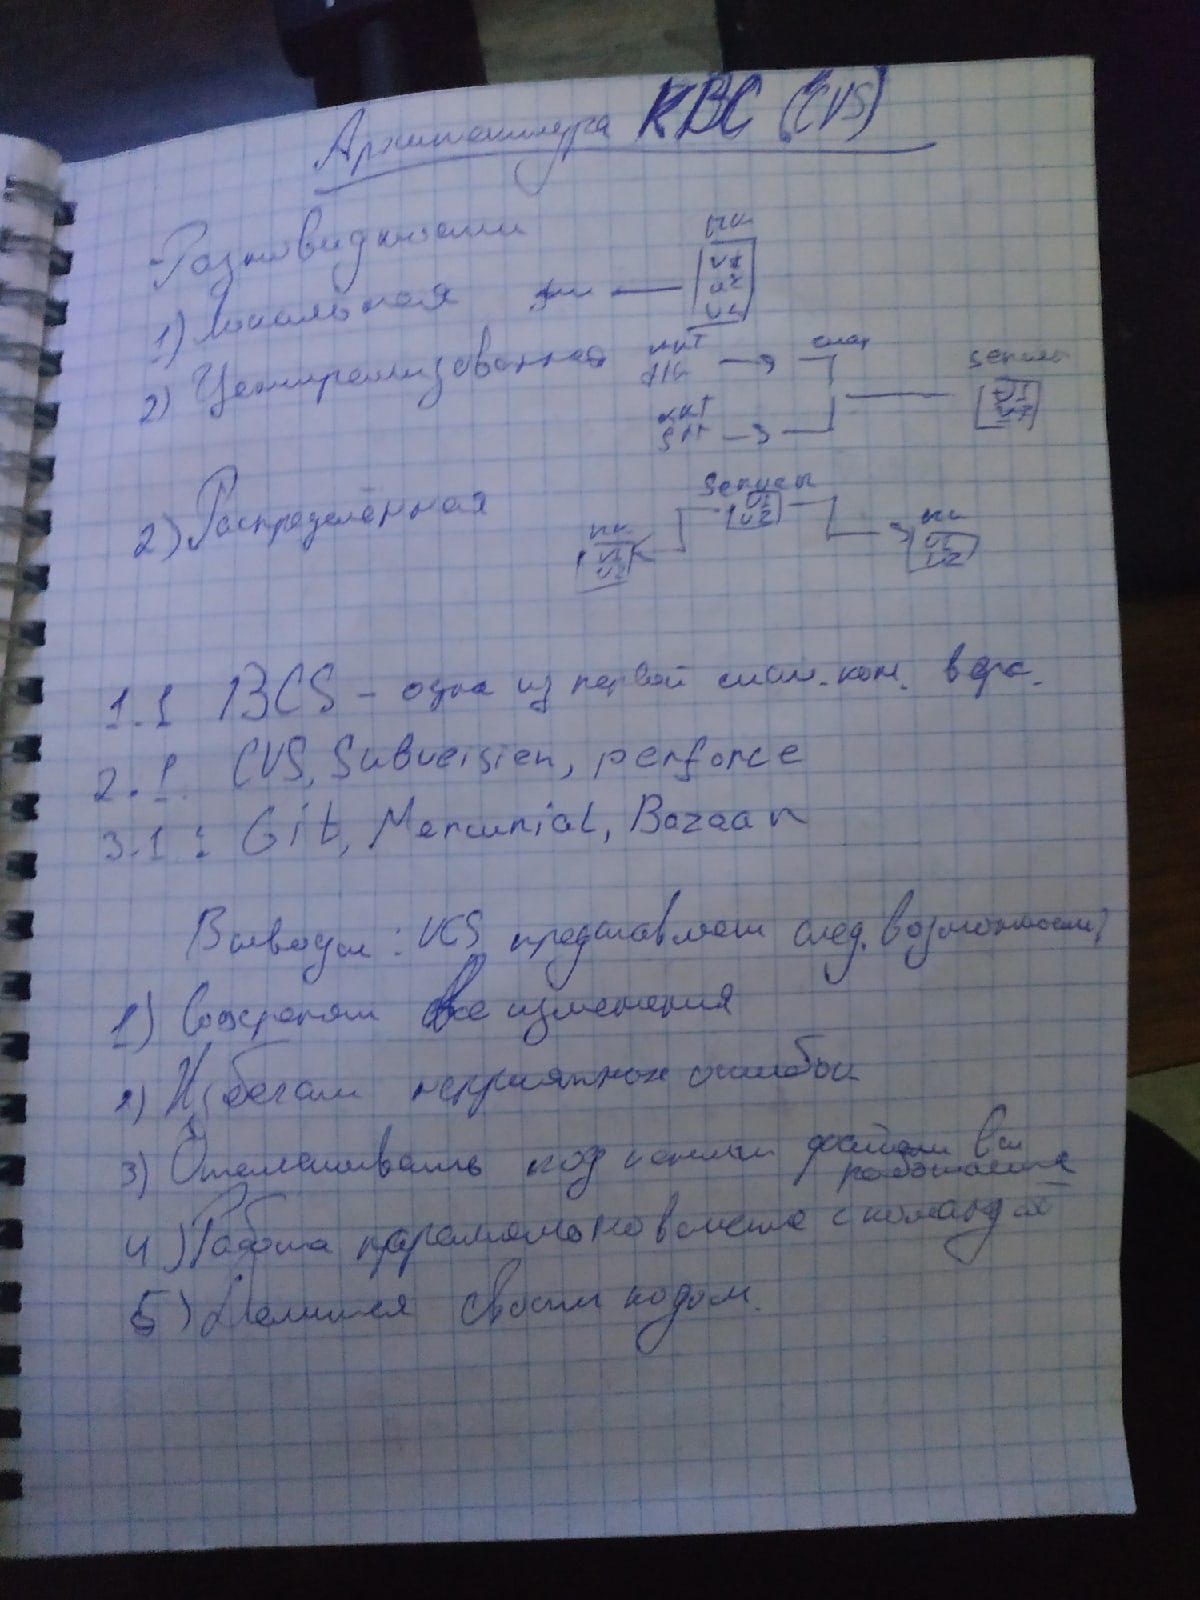 Архитектура КВС (CVS)
Разновидности
ПК
1) Локальная
V2
2) Централизованная
Server
V1
V2
2) Распределённая
Server
V1
V2
ПК
V1
V2
ПК
V1
V2
1.1 ВCS - одна из первой сист. кон. верс.
2.1. CVS, Subversion, perforce
3.1: Git, Mercurial, Bazaar
Выводы: VCS представляет след. возможности
1) Сохраняет все изменения
2) Избегать неприятных ошибок
3) Отслеживать над какими файлами вы
работаете
4) Работа параллельно вместе с командой
5) Делится своим кодом.